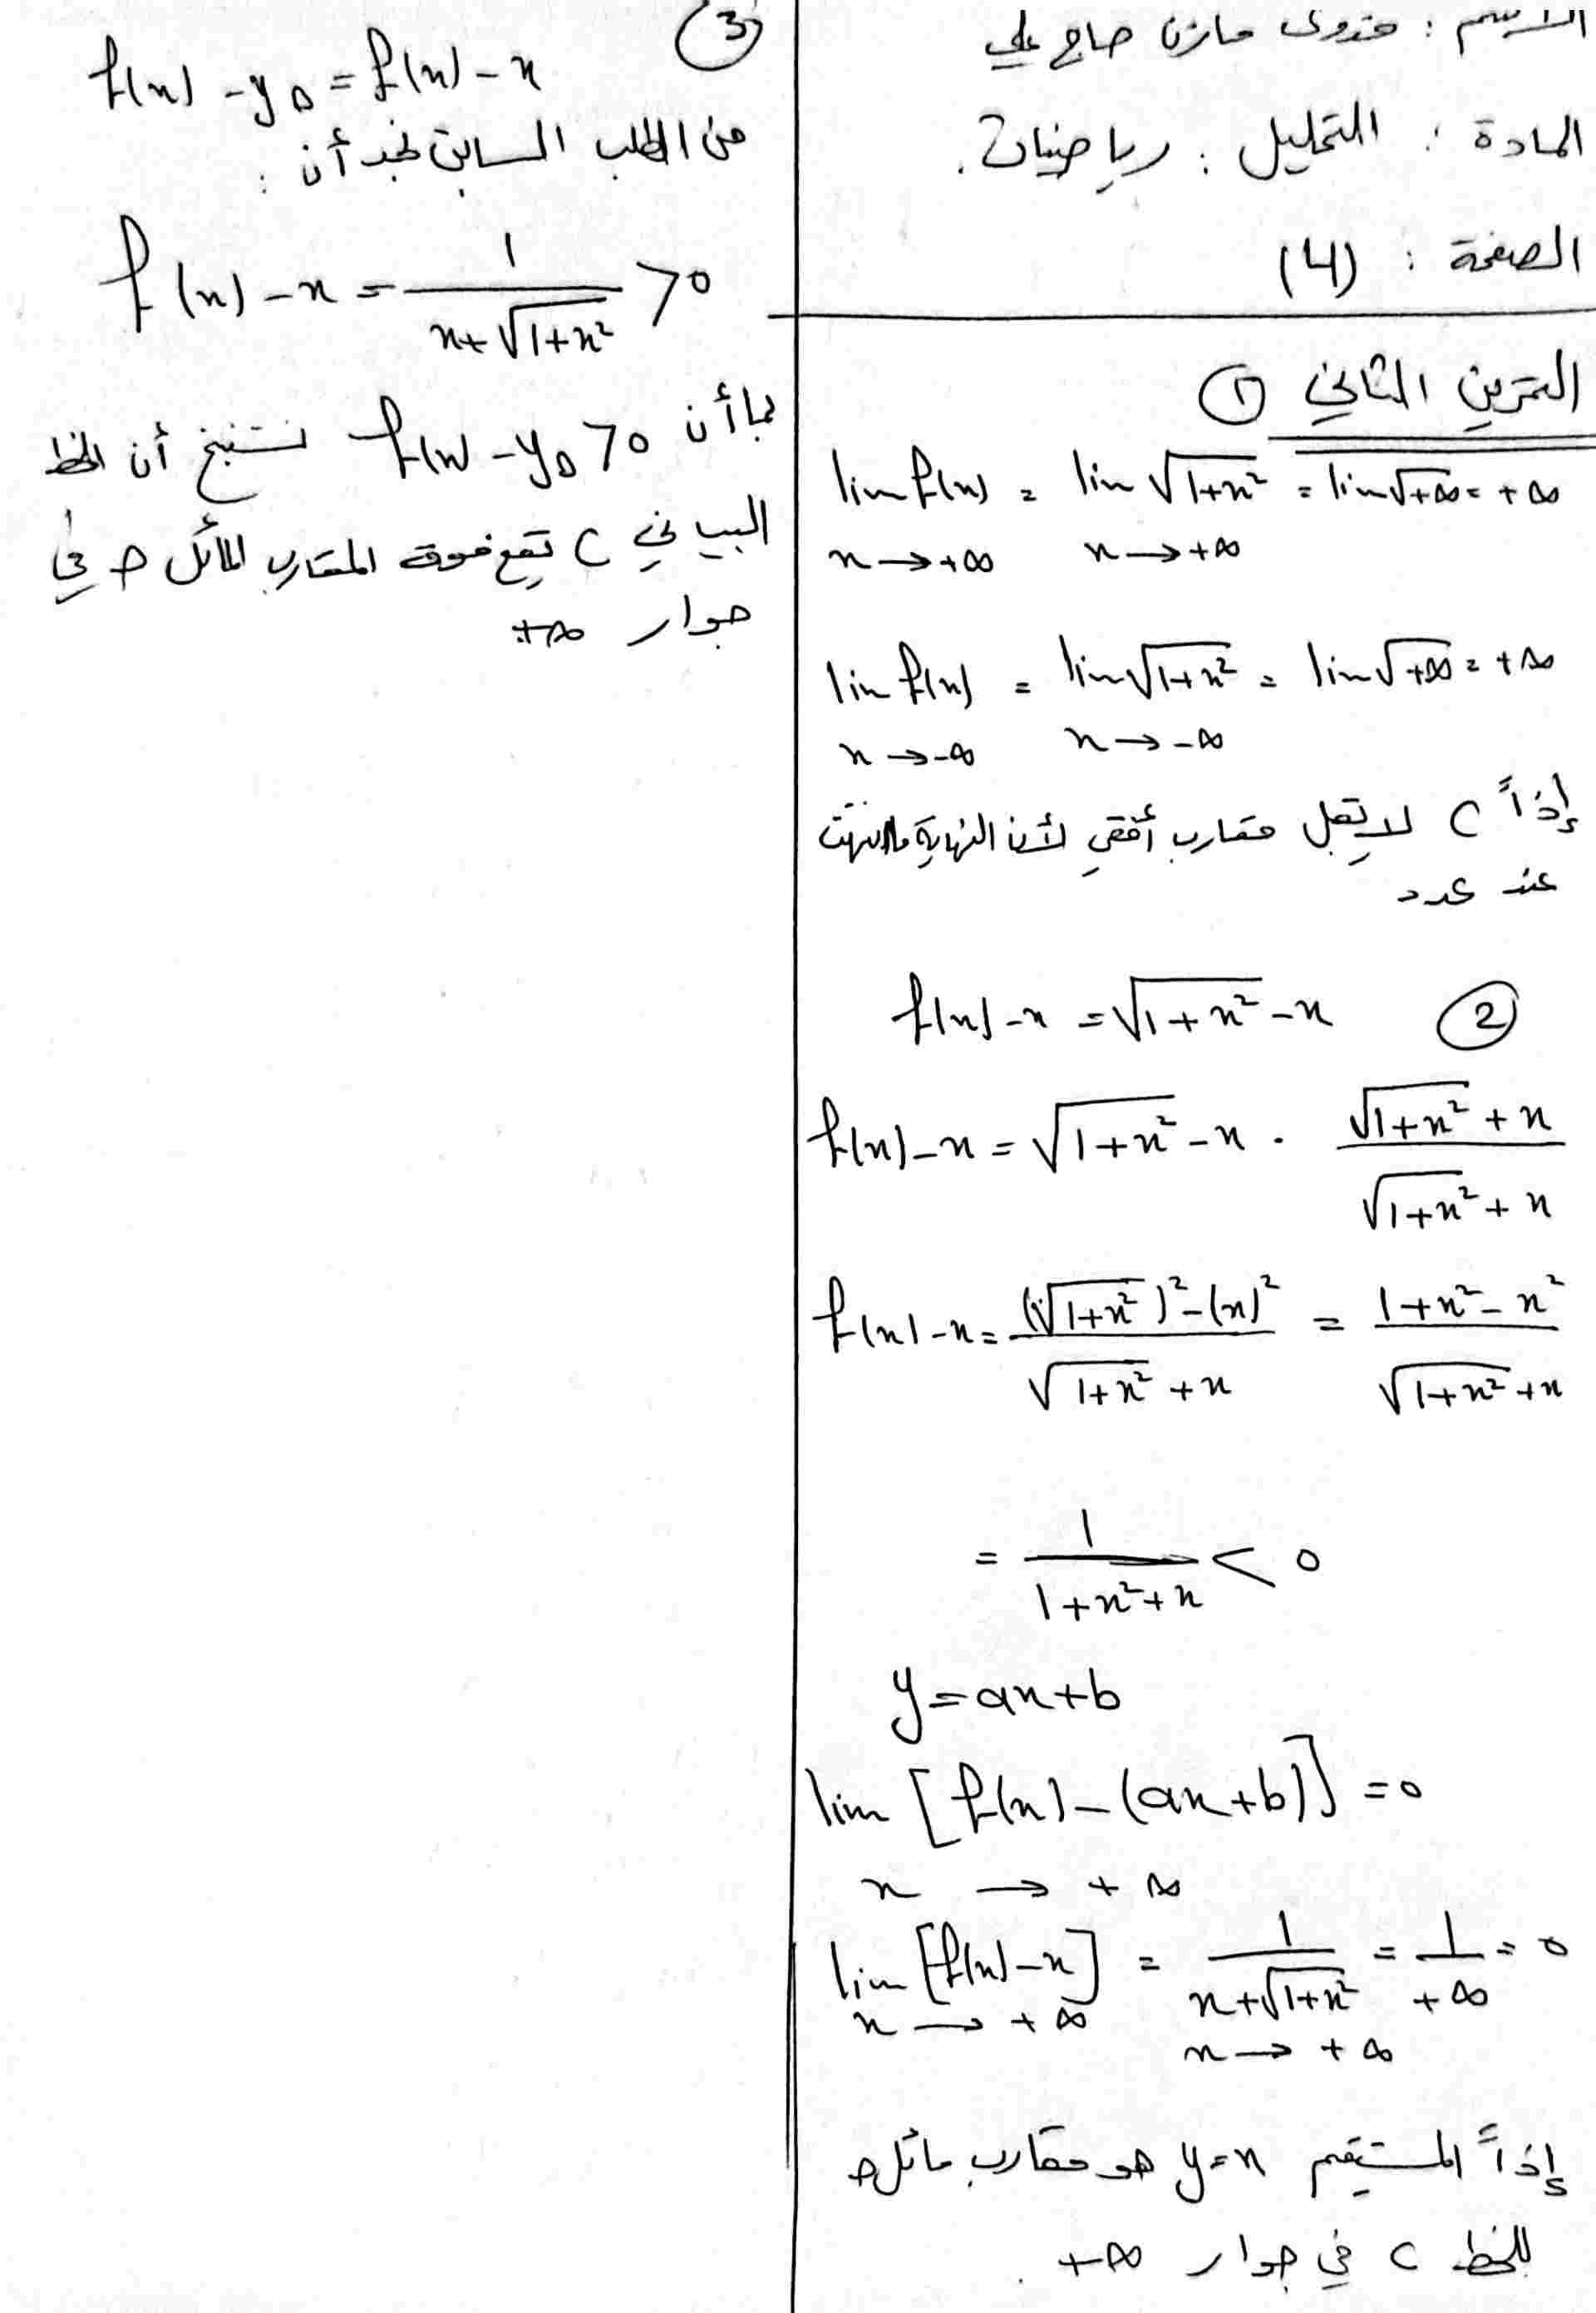 الاسم : فدوى مازن حاج علي
المادة : التحليل : رياضيات .
الصفحة : (4)
التمرين الثاني ①
lim f(x) = lim √(1+x²) = lim √+∞ = +∞
x → +∞ x → +∞
lim f(x) = lim √(1+x²) = lim √+∞ = +∞
x → -∞ x → -∞
إذاً C لا يقبل مقارب أفقي لأن النهاية ما انتهت
عند عدد
f(x) - x = √(1+x²) - x ②
f(x) - x = √(1+x²) - x . (√(1+x²) + x)/(√(1+x²) + x)
f(x) - x = ((√(1+x²))² - (x)²)/(√(1+x²) + x) = (1+x² - x²)/(√(1+x²) + x)
= 1/(1+x²+x) < 0
y = ax+b
lim [f(x) - (ax+b)] = 0
x → +∞
lim [f(x) - x] = 1/(x+√(1+x²)) = 1/+∞ = 0
x → +∞ x → +∞
إذاً المستقيم y=x هو مقارب مائل
للخط C في جوار +∞
③
f(x) - yΔ = f(x) - x
من الطلب السابق نجد أن :
f(x) - x = 1/(x+√(1+x²)) > 0
بما أن f(x) - yΔ > 0 نستنتج أن الخط
البياني C تقع فوق المقارب المائل في
جوار +∞